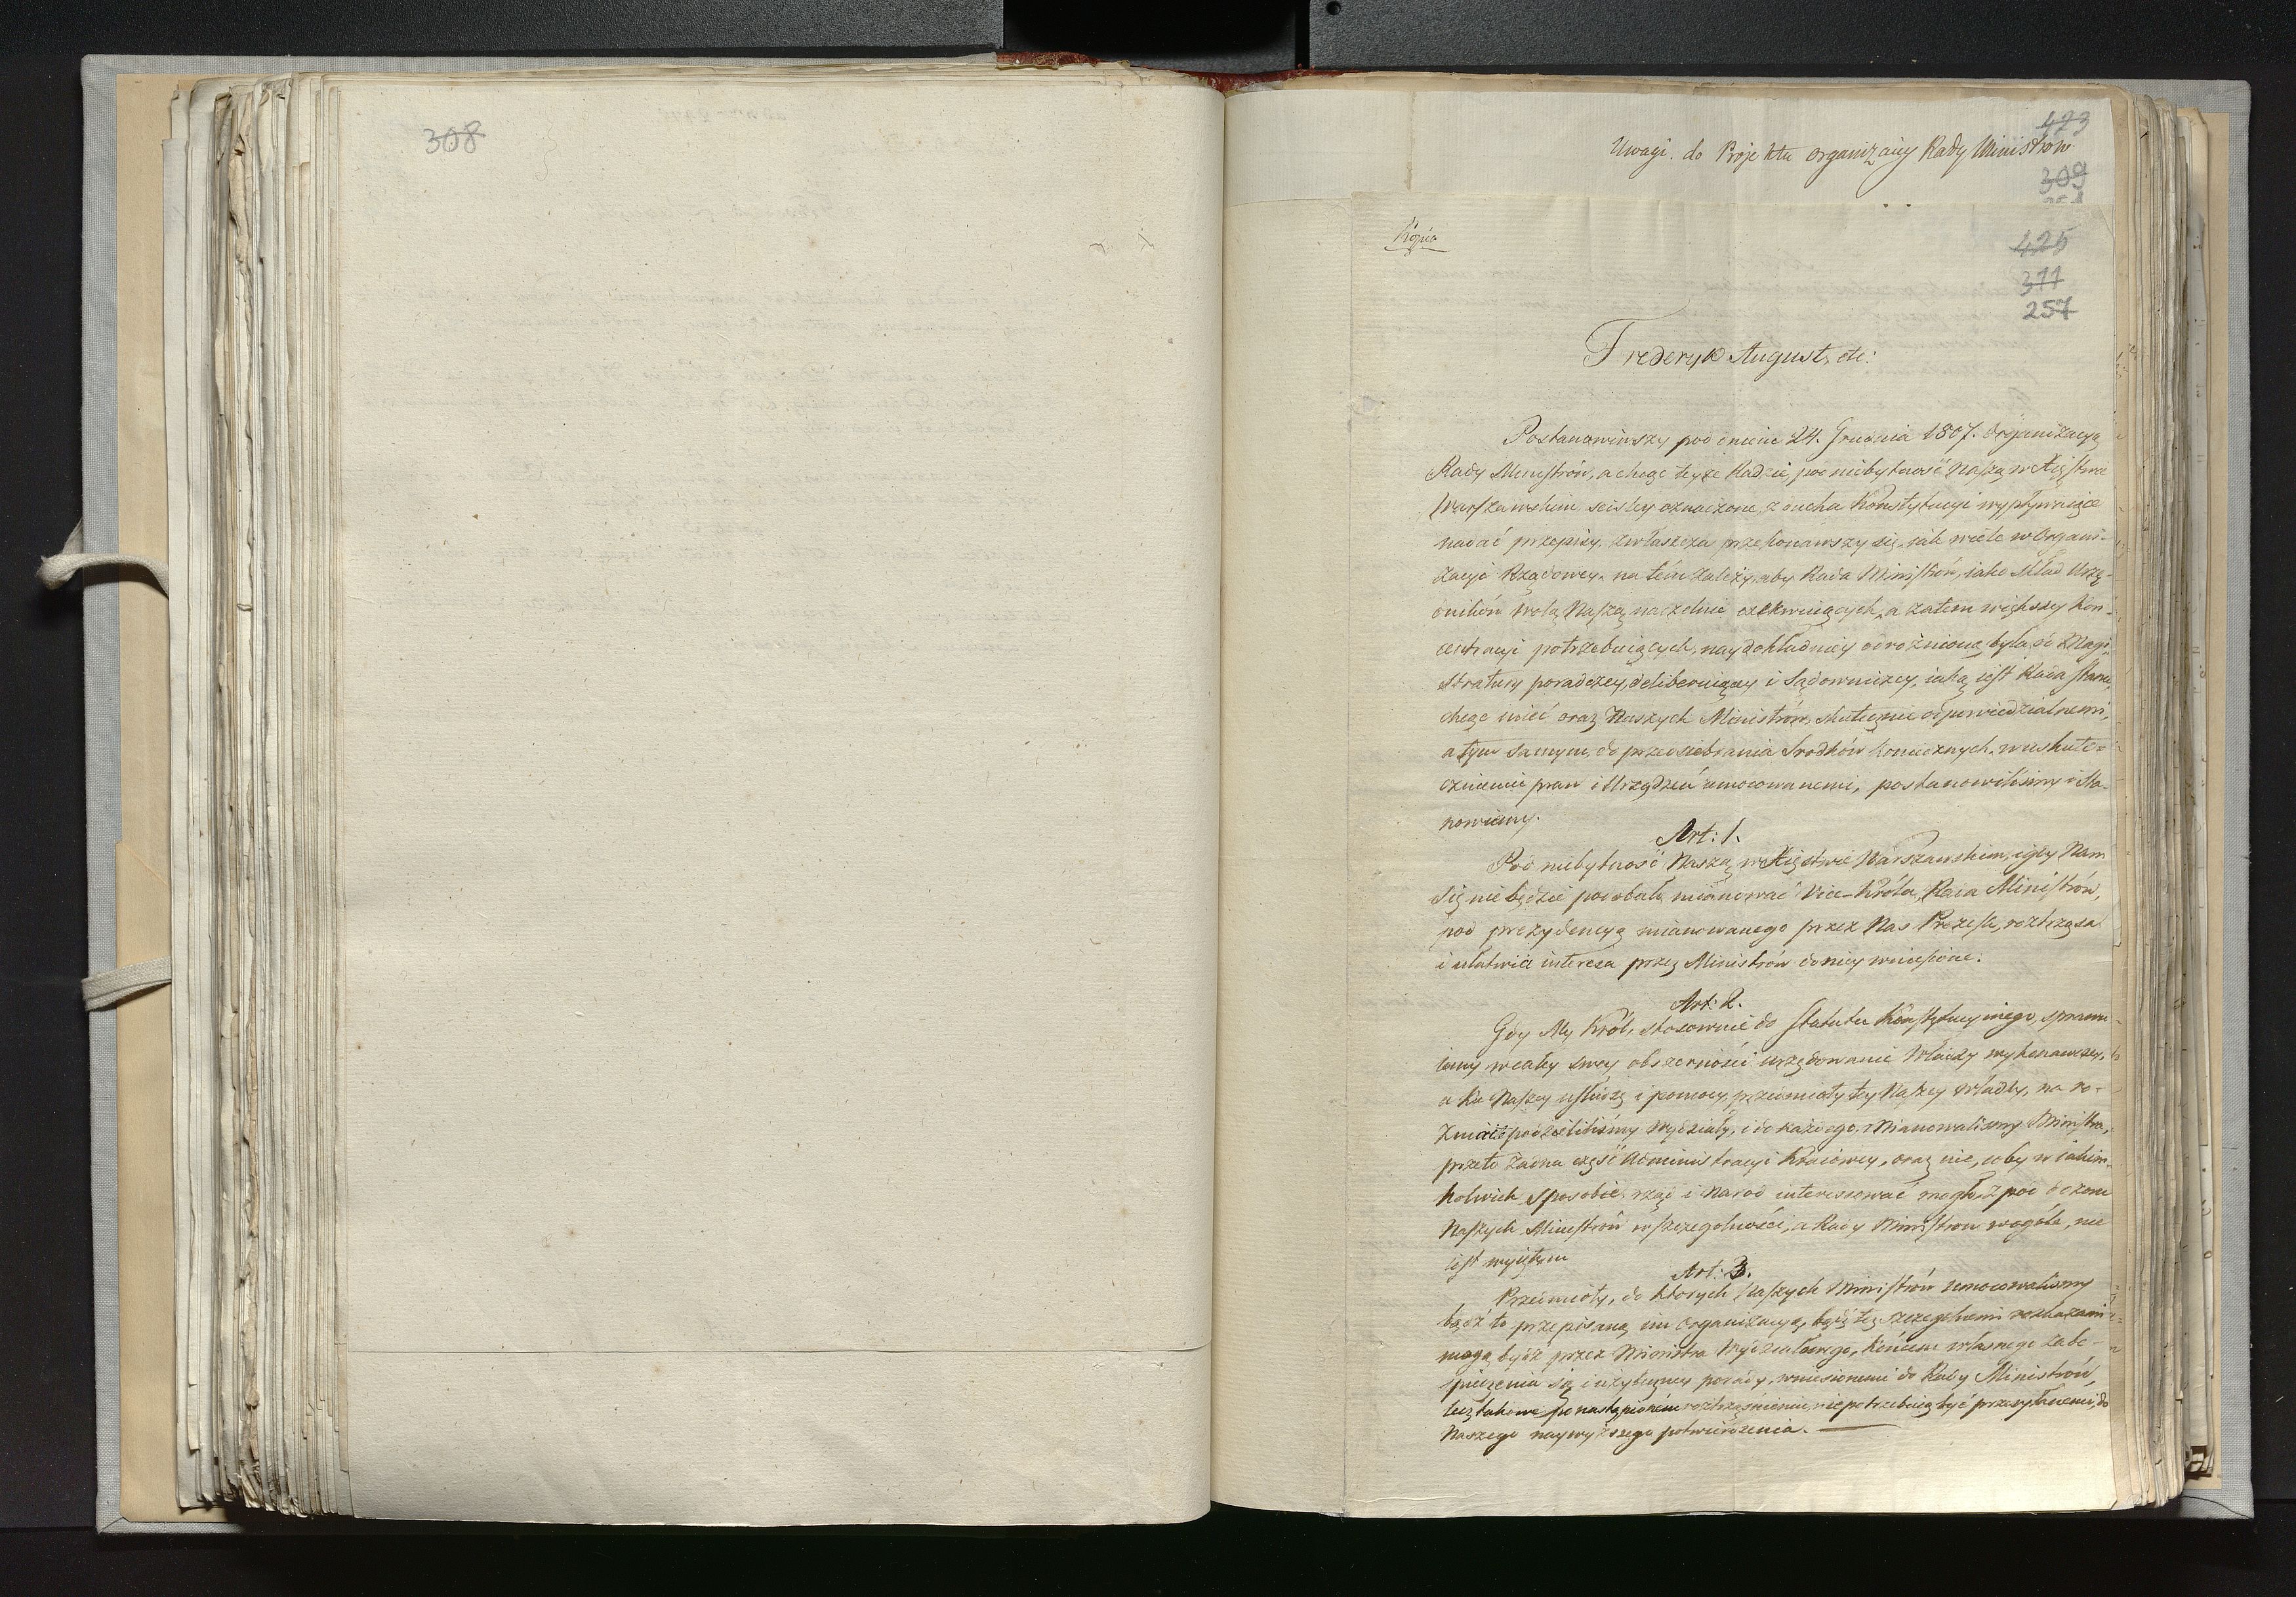 308
423
Uwagi do Projektu organizacyi Rady Ministrów
309
Kopia
425
377
257
Frederyk August, etc:
Postanowiwszy pod dniem 24. Grudnia 1807. Organizacyą
Rady Ministrów, a chcąc teyże Radzie, pod niebytność Naszą w Xięstwie
Warszawskim, sciśley oznaczone, z ducha Konstytucyi wypływaiące
nadać przepisy, zwłaszcza przekonawszy się, iak wiele w Organi-
zacyi Rządowey, na tém zależy, aby Rada Ministrów, iako skład Urzę-
dników wolą Naszą naczelnie exekwuiących, a zatem większey kon-
centracyi potrzebuiących, naydokładniey odróżnioną była od Magi-
stratury poradczey, deliberuiącey i Sądowniczey, iaką iest Rada Stanu,
chcąc mieć oraz Naszych Ministrów, skutecznie odpowiedzialnemi,
a tym samym, do przedsiebrania Srodków koniecznych, w uskute-
cznieniu praw i Urządzeń umocowanemi, postanowiliśmy i Sta-
nowiemy.
Art: 1.
Pod niebytność Naszą w Xięstwie Warszawskim, i gdy Nam
Się nie będzie podobało mianować Vice-Króla, Rada Ministrów,
pod prezydencyą mianowanego przez Nas Prezesa, roztrząsa
i ułatwia interesa przez Ministrów do niey wniesione.
Art: 2.
Gdy My Król, stosownie do Statutu Konstytucyinego, sprawu-
iemy w całey swey obszerności urzędowanie Władzy wykonawczey,
a ku Naszey usłudze i pomocy, przedmioty tey Naszey władzy, na ro-
zmaite podzieliliśmy wydziały, i do każdego, mianowaliśmy Ministra,
przeto żadna część Administracyi Kraiowey, oraz nic, coby w iakim-
kolwiek sposobie rząd i Naród interessować mogło, z pod dozoru
Naszych Ministrów w szczególności, a Rady Ministrów wogóle, nie
iest wyiętem
Art: 3.
Przedmioty, do których Naszych Ministrów umocowaliśmy
bądź to przepisaną im Organizacyą, bądź też szczególnemi rozkazami
mogą bydź przez Ministra Wydziałowego, końcem własnego zabe-
spieczenia się i użyteczney porady, wniesionemi do Rady Ministrów,
lecz takowe po nastąpioném roztrząśnieniu, niepotrzebuią być przesyłanemi, do
Naszego naywyższego potwierdzenia.